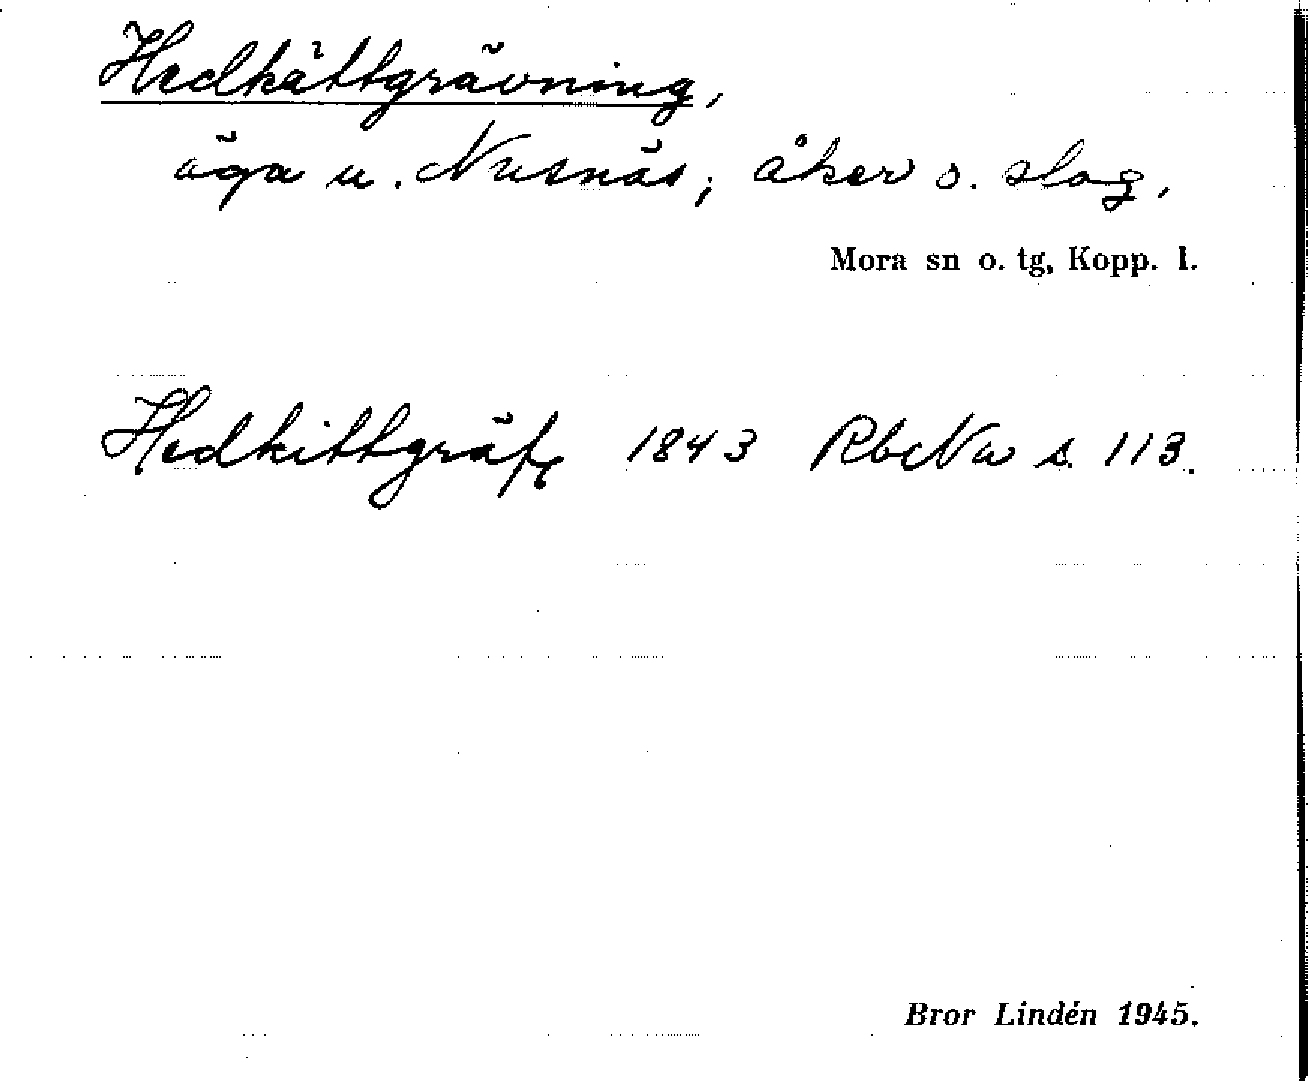 Hedkättgrävning,
äga u. Nusnäs; åker o. slog,
Mora sn o. tg, Kopp. l.
Hedkittgräfg 1843 RbcNa s. 113.
Bror Lindén 1945.